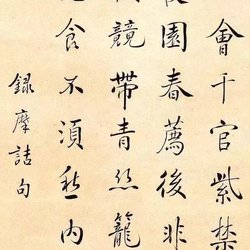 會千官紫禁
園春薦後非
競帶青絲籠
食不須愁內
録摩詰句